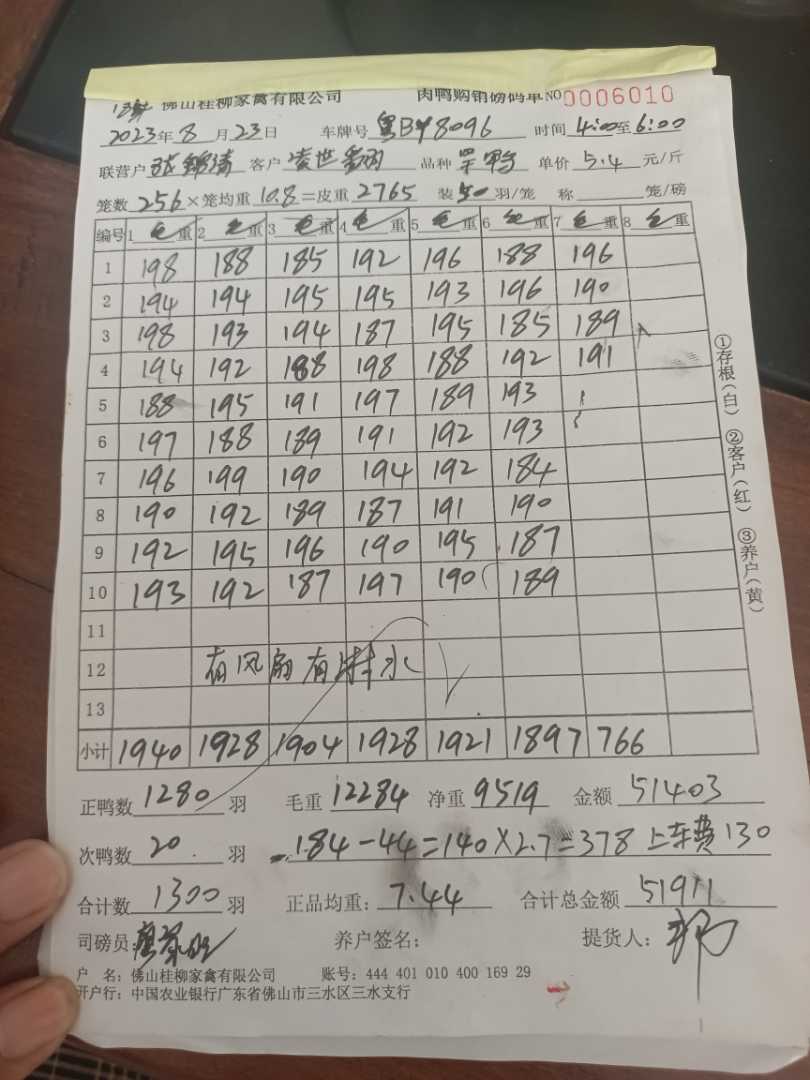 佛山桂柳家禽有限公司 肉鸭购销磅码单 NO 0006010
2023年8月23日 车牌号 粤B 8096 时间 4:00至6:00
联营户 客户 品种 鸭 单价 5.4 元/斤
笼数 256 ×笼均重 10.8 =皮重 2765 装 50 羽/笼 称 笼/磅
编号 1 毛重 2 毛重 3 毛重 4 毛重 5 毛重 6 毛重 7 毛重 8 毛重
1 198 188 185 192 196 188 196
2 194 194 195 195 193 196 190
3 198 193 194 187 195 185 189
4 194 192 188 198 188 192 191
5 188 195 191 197 189 193
6 197 188 189 191 192 193
7 196 199 190 194 192 184
8 190 192 189 187 191 190
9 192 195 196 190 195 187
10 193 192 187 197 190 189
11
12 有风扇有 水
13
小计 1940 1928 1904 1928 1921 1897 766
正鸭数 1280 羽 毛重 12284 净重 9519 金额 51403
次鸭数 20 羽 184-44=140×2.7=378 上车费130
合计数 1300 羽 正品均重: 7.44 合计总金额 51911
司磅员: 养户签名: 提货人:
户 名: 佛山桂柳家禽有限公司 账号: 444 401 010 400 169 29
开户行: 中国农业银行广东省佛山市三水区三水支行
①存根(白) ②客户(红) ③养户(黄)